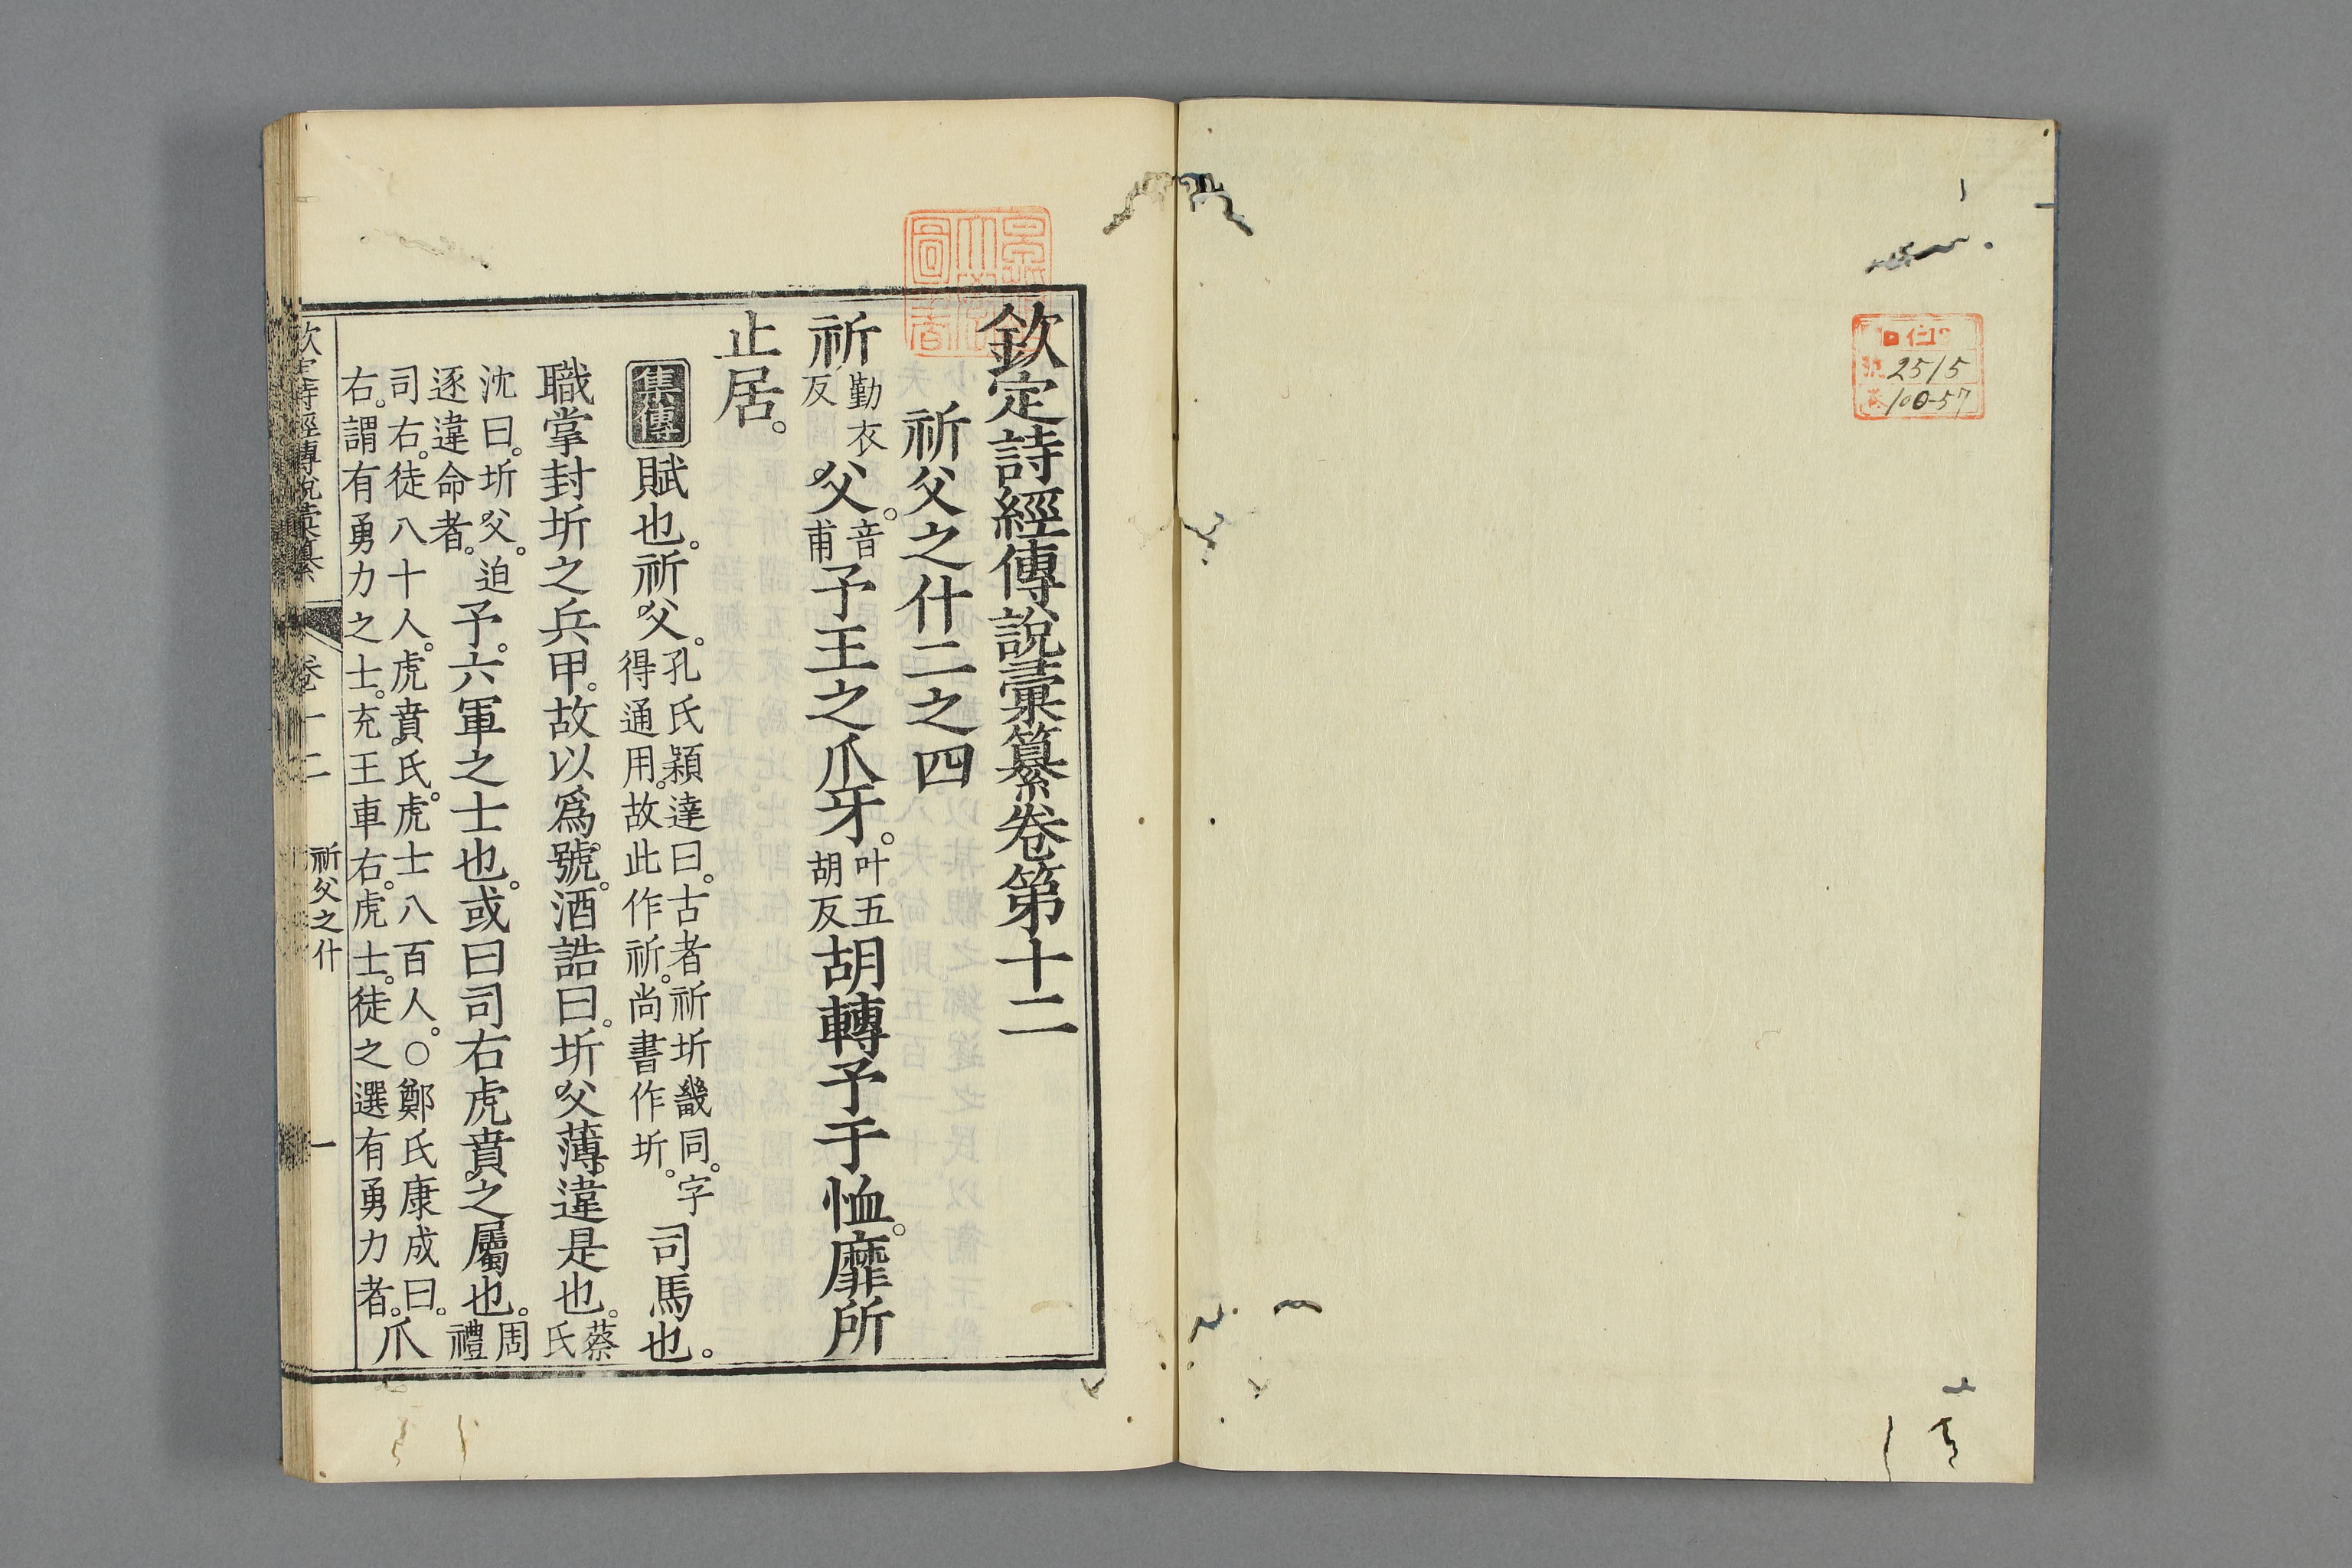 2515
100-57
欽定詩經傳說彙纂卷第十二
祈父之什二之四
祈勤衣反父音甫。予王之爪牙。叶五胡反胡轉予于恤。靡所
止居。
集傳賦也。祈父。孔氏穎達曰。古者祈圻畿同。字得通用。故此作祈。尚書作圻。司馬也。
職掌封圻之兵甲。故以爲號。酒誥曰。圻父薄違是也。蔡氏
沈曰。圻父。迫逐違命者。予。六軍之士也。或曰司右虎賁之屬也。周禮
司右。徒八十人。虎賁氏。虎士八百人。○鄭氏康成曰。右。謂有勇力之士。充王車右。虎士。徒之選有勇力者。爪
欽定詩經傳說彙纂 卷十二 祈父之什 一